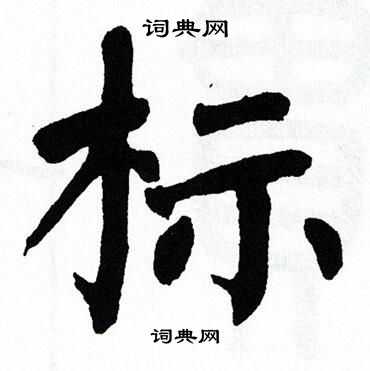 词典网
标
词典网